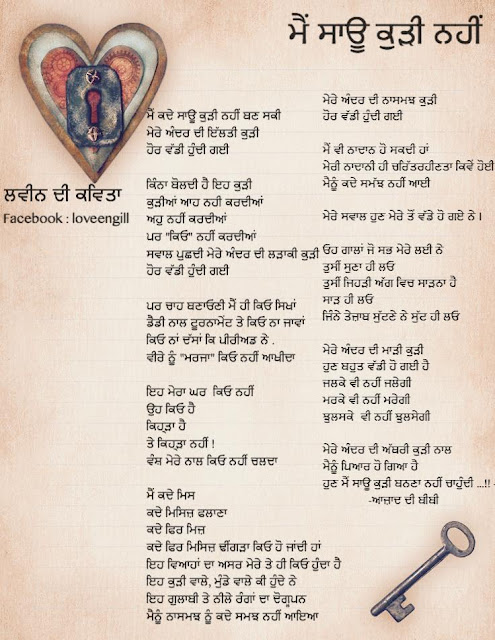 ਮੈਂ ਸਾਊ ਕੁੜੀ ਨਹੀਂ
ਲਵੀਨ ਦੀ ਕਵਿਤਾ
Facebook : loveengill
ਮੈਂ ਕਦੇ ਸਾਊ ਕੁੜੀ ਨਹੀਂ ਬਣ ਸਕੀ
ਮੇਰੇ ਅੰਦਰ ਦੀ ਇੱਲਤੀ ਕੁੜੀ
ਹੋਰ ਵੱਡੀ ਹੁੰਦੀ ਗਈ
ਕਿੰਨਾ ਬੋਲਦੀ ਹੈ ਇਹ ਕੁੜੀ
ਕੁੜੀਆਂ ਆਹ ਨਹੀ ਕਰਦੀਆਂ
ਅਹੁ ਨਹੀਂ ਕਰਦੀਆਂ
ਪਰ "ਕਿਓ" ਨਹੀਂ ਕਰਦੀਆਂ
ਸਵਾਲ ਪੁਛਦੀ ਮੇਰੇ ਅੰਦਰ ਦੀ ਲੜਾਕੀ ਕੁੜੀ
ਹੋਰ ਵੱਡੀ ਹੁੰਦੀ ਗਈ
ਪਰ ਚਾਹ ਬਣਾਓਣੀ ਮੈਂ ਹੀ ਕਿਓ ਸਿਖਾਂ
ਡੈਡੀ ਨਾਲ ਟੂਰਨਾਮੇਂਟ ਤੇ ਕਿਓ ਨਾ ਜਾਵਾਂ
ਕਿਓ ਨਾਂ ਦੱਸਾਂ ਕਿ ਪੀਰੀਅਡ ਨੇ .
ਵੀਰੇ ਨੂੰ "ਮਰਜਾ" ਕਿਓ ਨਹੀਂ ਆਖੀਦਾ
ਇਹ ਮੇਰਾ ਘਰ ਕਿਓ ਨਹੀਂ
ਉਹ ਕਿਓ ਹੈ
ਕਿਹੜਾ ਹੈ
ਤੇ ਕਿਹੜਾ ਨਹੀਂ !
ਵੰਸ਼ ਮੇਰੇ ਨਾਲ ਕਿਓ ਨਹੀਂ ਚਲਦਾ
ਮੈਂ ਕਦੇ ਮਿਸ
ਕਦੇ ਮਿਸਿਜ਼ ਫਲਾਣਾ
ਕਦੇ ਫਿਰ ਮਿਜ਼
ਕਦੇ ਫਿਰ ਮਿਸਿਜ਼ ਢੀਂਗੜਾ ਕਿਓ ਹੋ ਜਾਂਦੀ ਹਾਂ
ਇਹ ਵਿਆਹਾਂ ਦਾ ਅਸਰ ਮੇਰੇ ਤੇ ਹੀ ਕਿਓ ਹੁੰਦਾ ਹੈ
ਇਹ ਕੁੜੀ ਵਾਲੇ, ਮੁੰਡੇ ਵਾਲੇ ਕੀ ਹੁੰਦੇ ਨੇ
ਇਹ ਗੁਲਾਬੀ ਤੇ ਨੀਲੇ ਰੰਗਾਂ ਦਾ ਦੋਗੁਪਨ
ਮੈਨੂੰ ਨਾਸਮਝ ਨੂੰ ਕਦੇ ਸਮਝ ਨਹੀਂ ਆਇਆ
ਮੇਰੇ ਅੰਦਰ ਦੀ ਨਾਸਮਝ ਕੁੜੀ
ਹੋਰ ਵੱਡੀ ਹੁੰਦੀ ਗਈ
ਮੈਂ ਵੀ ਨਾਦਾਨ ਹੋ ਸਕਦੀ ਹਾਂ
ਮੇਰੀ ਨਾਦਾਨੀ ਹੀ ਚਰਿੱਤਰਹੀਣਤਾ ਕਿਵੇਂ ਹੋਈ
ਮੈਨੂੰ ਕਦੇ ਸਮੱਝ ਨਹੀਂ ਆਈ
ਮੇਰੇ ਸਵਾਲ ਹੁਣ ਮੇਰੇ ਤੋਂ ਵੱਡੇ ਹੋ ਗਏ ਨੇ ।
ਓਹ ਗਾਲਾਂ ਜੋ ਸਭ ਮੇਰੇ ਲਈ ਨੇ
ਤੁਸੀਂ ਸੁਣਾ ਹੀ ਲਓ
ਤੁਸੀਂ ਜਿਹੜੀ ਅੱਗ ਵਿਚ ਸਾੜਨਾ ਹੈ
ਸਾੜ ਹੀ ਲਓ
ਜਿੰਨੇ ਤੇਜ਼ਾਬ ਸੁੱਟਣੇ ਨੇ ਸੁੱਟ ਹੀ ਲਓ
ਮੇਰੇ ਅੰਦਰ ਦੀ ਮਾੜੀ ਕੁੜੀ
ਹੁਣ ਬਹੁਤ ਵੱਡੀ ਹੋ ਗਈ ਹੈ
ਜਲਕੇ ਵੀ ਨਹੀਂ ਜਲੇਗੀ
ਮਰਕੇ ਵੀ ਨਹੀਂ ਮਰੇਗੀ
ਝੁਲਸਕੇ ਵੀ ਨਹੀਂ ਝੁਲਸੇਗੀ
ਮੇਰੇ ਅੰਦਰ ਦੀ ਅੱਥਰੀ ਕੁੜੀ ਨਾਲ
ਮੈਨੂੰ ਪਿਆਰ ਹੋ ਗਿਆ ਹੈ
ਹੁਣ ਮੈਂ ਸਾਊ ਕੁੜੀ ਬਨਣਾ ਨਹੀਂ ਚਾਹੁੰਦੀ ...!! -
-ਆਜ਼ਾਦ ਦੀ ਬੀਬੀ